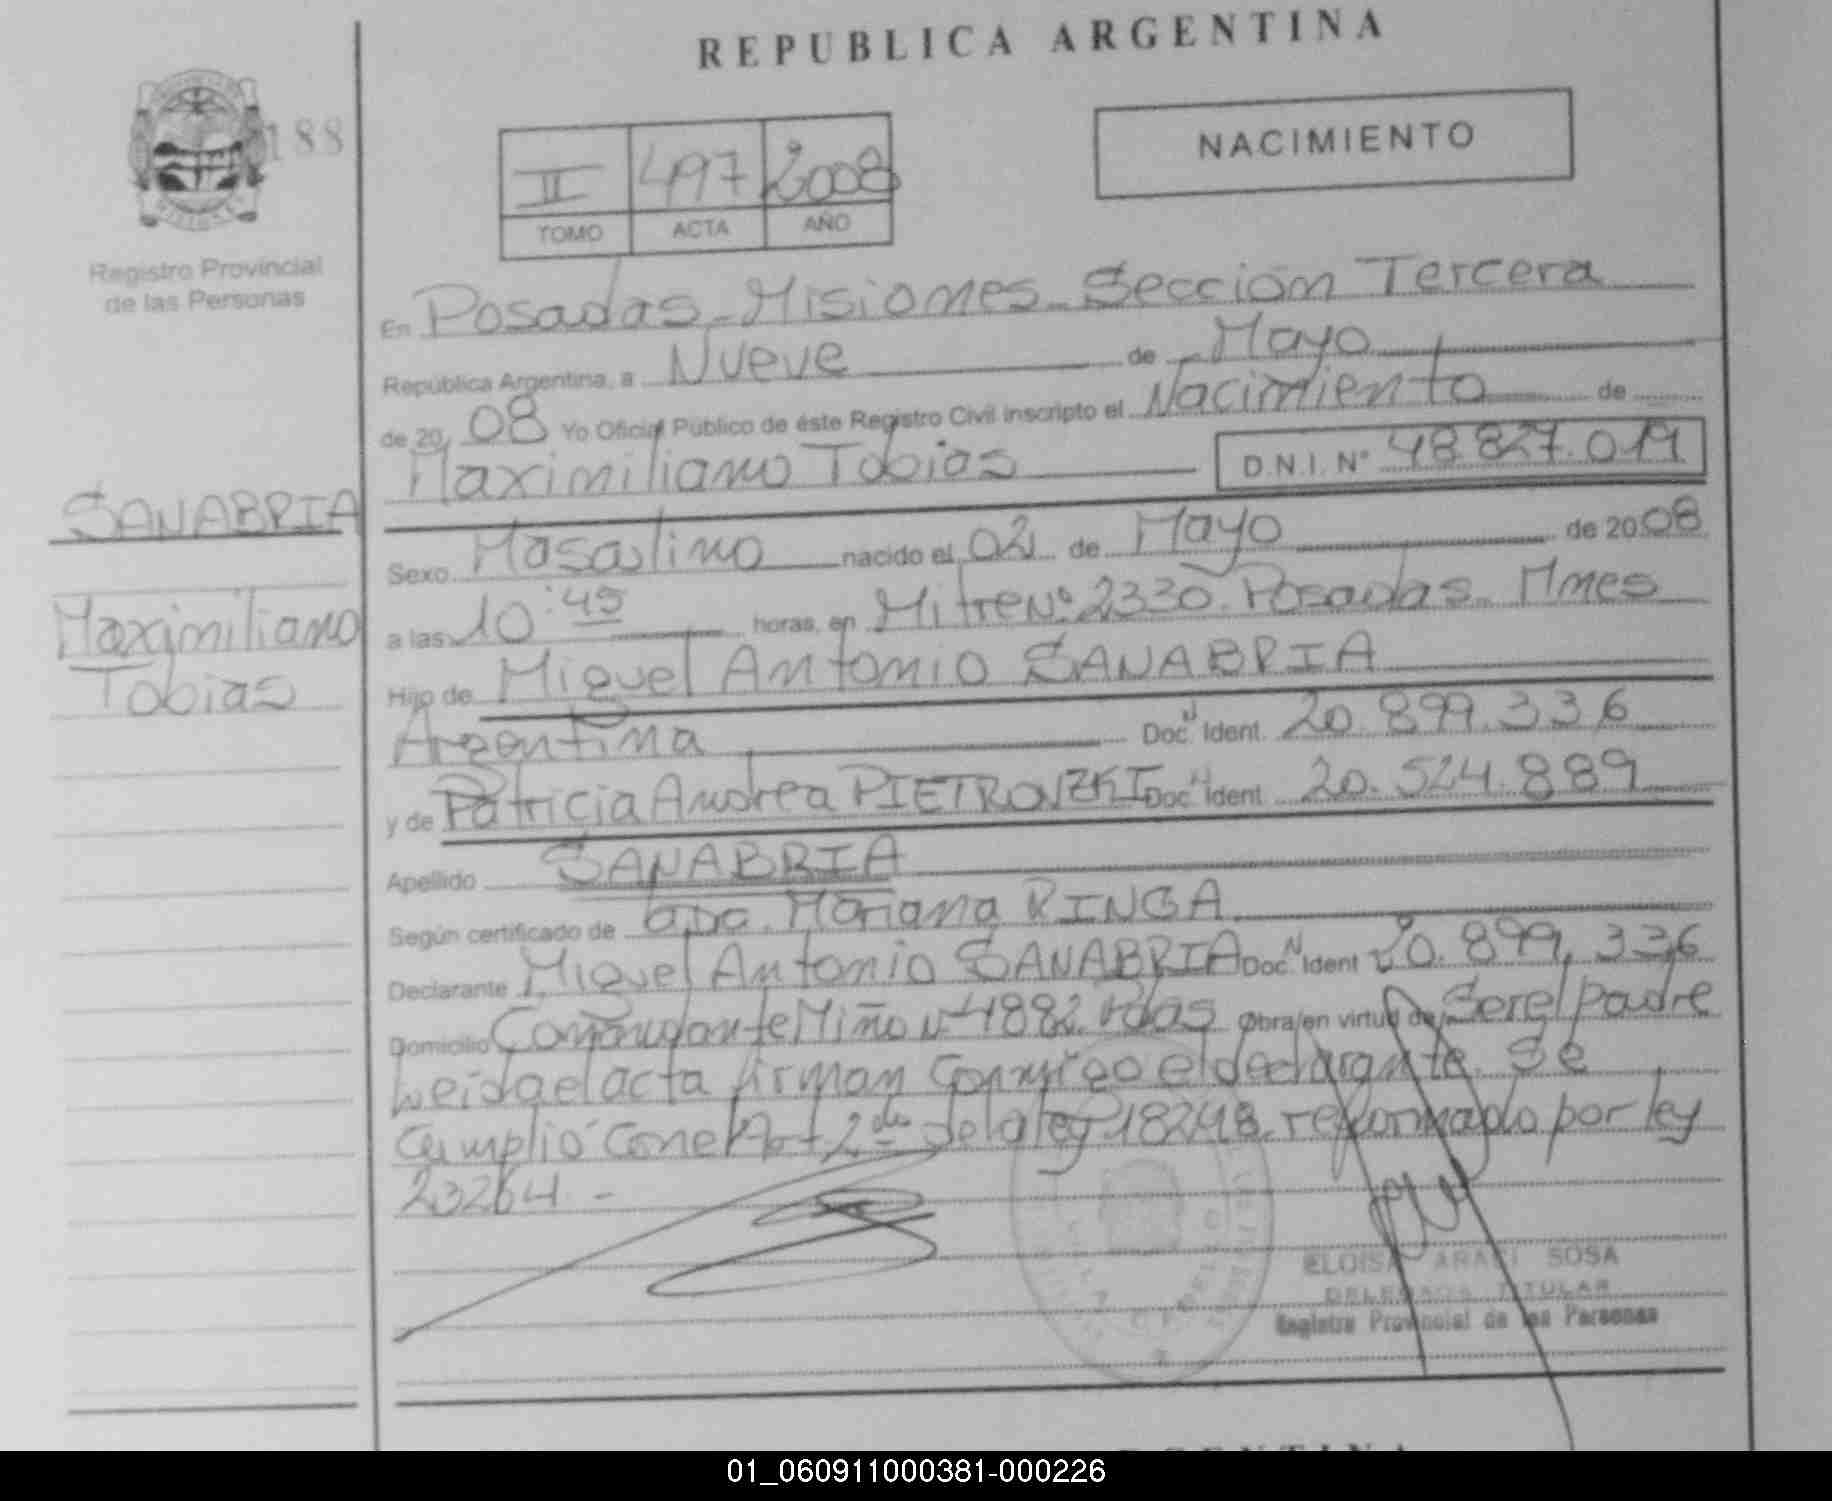 REPUBLICA ARGENTINA
188
NACIMIENTO
II 497 2008
TOMO ACTA AÑO
Registro Provincial
de las Personas
En Posadas - Misiones - Sección Tercera
República Argentina, a Nueve de Mayo
de 20 08 Yo Oficial Público de éste Registro Civil inscripto el Nacimiento de
Maximiliano Tobias D.N.I. N° 48.827.019
SANABRIA
Maximiliano
Tobias
Sexo Masculino nacido el 02 de Mayo de 20 08
a las 10:45 horas, en Mitre N° 2330. Posadas - Mnes
Hijo de Miguel Antonio SANABRIA
Argentina Doc. Ident. 20.899.336
y de Patricia Andrea Doc. Ident. 20.524.889
Apellido SANABRIA
Según certificado de Mariana RINGA
Declarante Miguel Antonio SANABRIA Doc. Ident 20.899.336
Domicilio Comandante Miño N° 4882 Pdas Obra/en virtud de Ser el padre
Leida el acta firman conmigo el declarante. Se
cumplió con el Art 2do de la ley 18248 reformado por ley
23264 -
ELOISA ARACI SOSA
DELEGADA TITULAR
Registro Provincial de las Personas
01_060911000381-000226